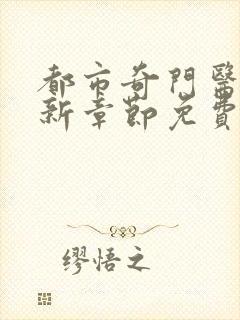 都市奇門醫
新章節免費
缪悟之